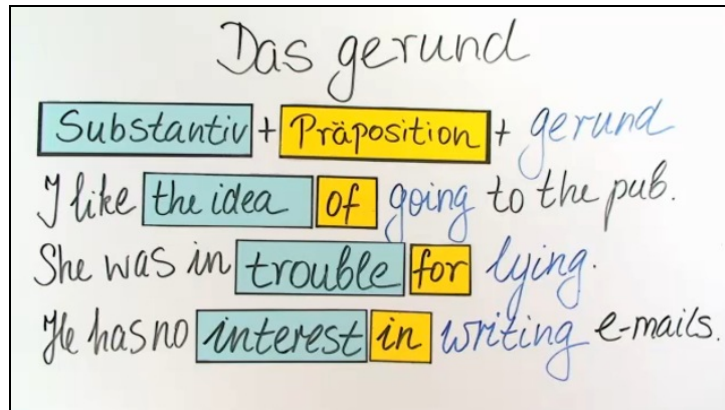 Das gerund
Substantiv + Präposition + gerund
I like the idea of going to the pub.
She was in trouble for lying.
He has no interest in writing e-mails.